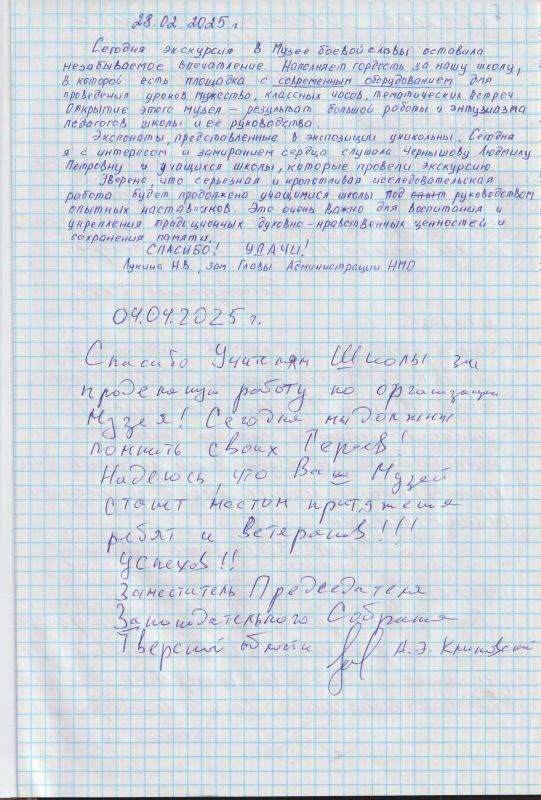 28.02.2025 г
Сегодня экскурсия в Музее боевой славы оставила
незабываемое впечатление. Наполняет гордость за нашу школу,
в которой есть площадка с современным оборудованием для
проведения уроков мужества, классных часов, тематических встреч.
Открытие этого музея – результат большой работы и энтузиазма
педагогов школы и её руководства.
Экспонаты, представленные в экспозиции уникальны. Сегодня
я с интересом и замиранием сердца слушала Чернышову Людмилу
Петровну и учащихся школы, которые провели экскурсию
Уверена, что серьезная и кропотливая исследовательская
работа будет продолжена учащимися школы под руководством
опытных наставников. Это очень важно для воспитания и
укрепления традиционных духовно-нравственных ценностей и
сохранения памяти.
СПАСИБО! УДАЧИ!
Лукина Н.В., зам Главы Администрации НМО
04.04.2025 г.
Спасибо Учителям Школы за
проделанную работу по организации
Музея! Сегодня мы должны
помнить своих Героев!
Надеюсь, что Ваш Музей
станет местом притяжения
ребят и ветеранов!!!
Успехов!!
Заместитель Председателя
Законодательного Собрания
Тверской области А.Э. Клиновский